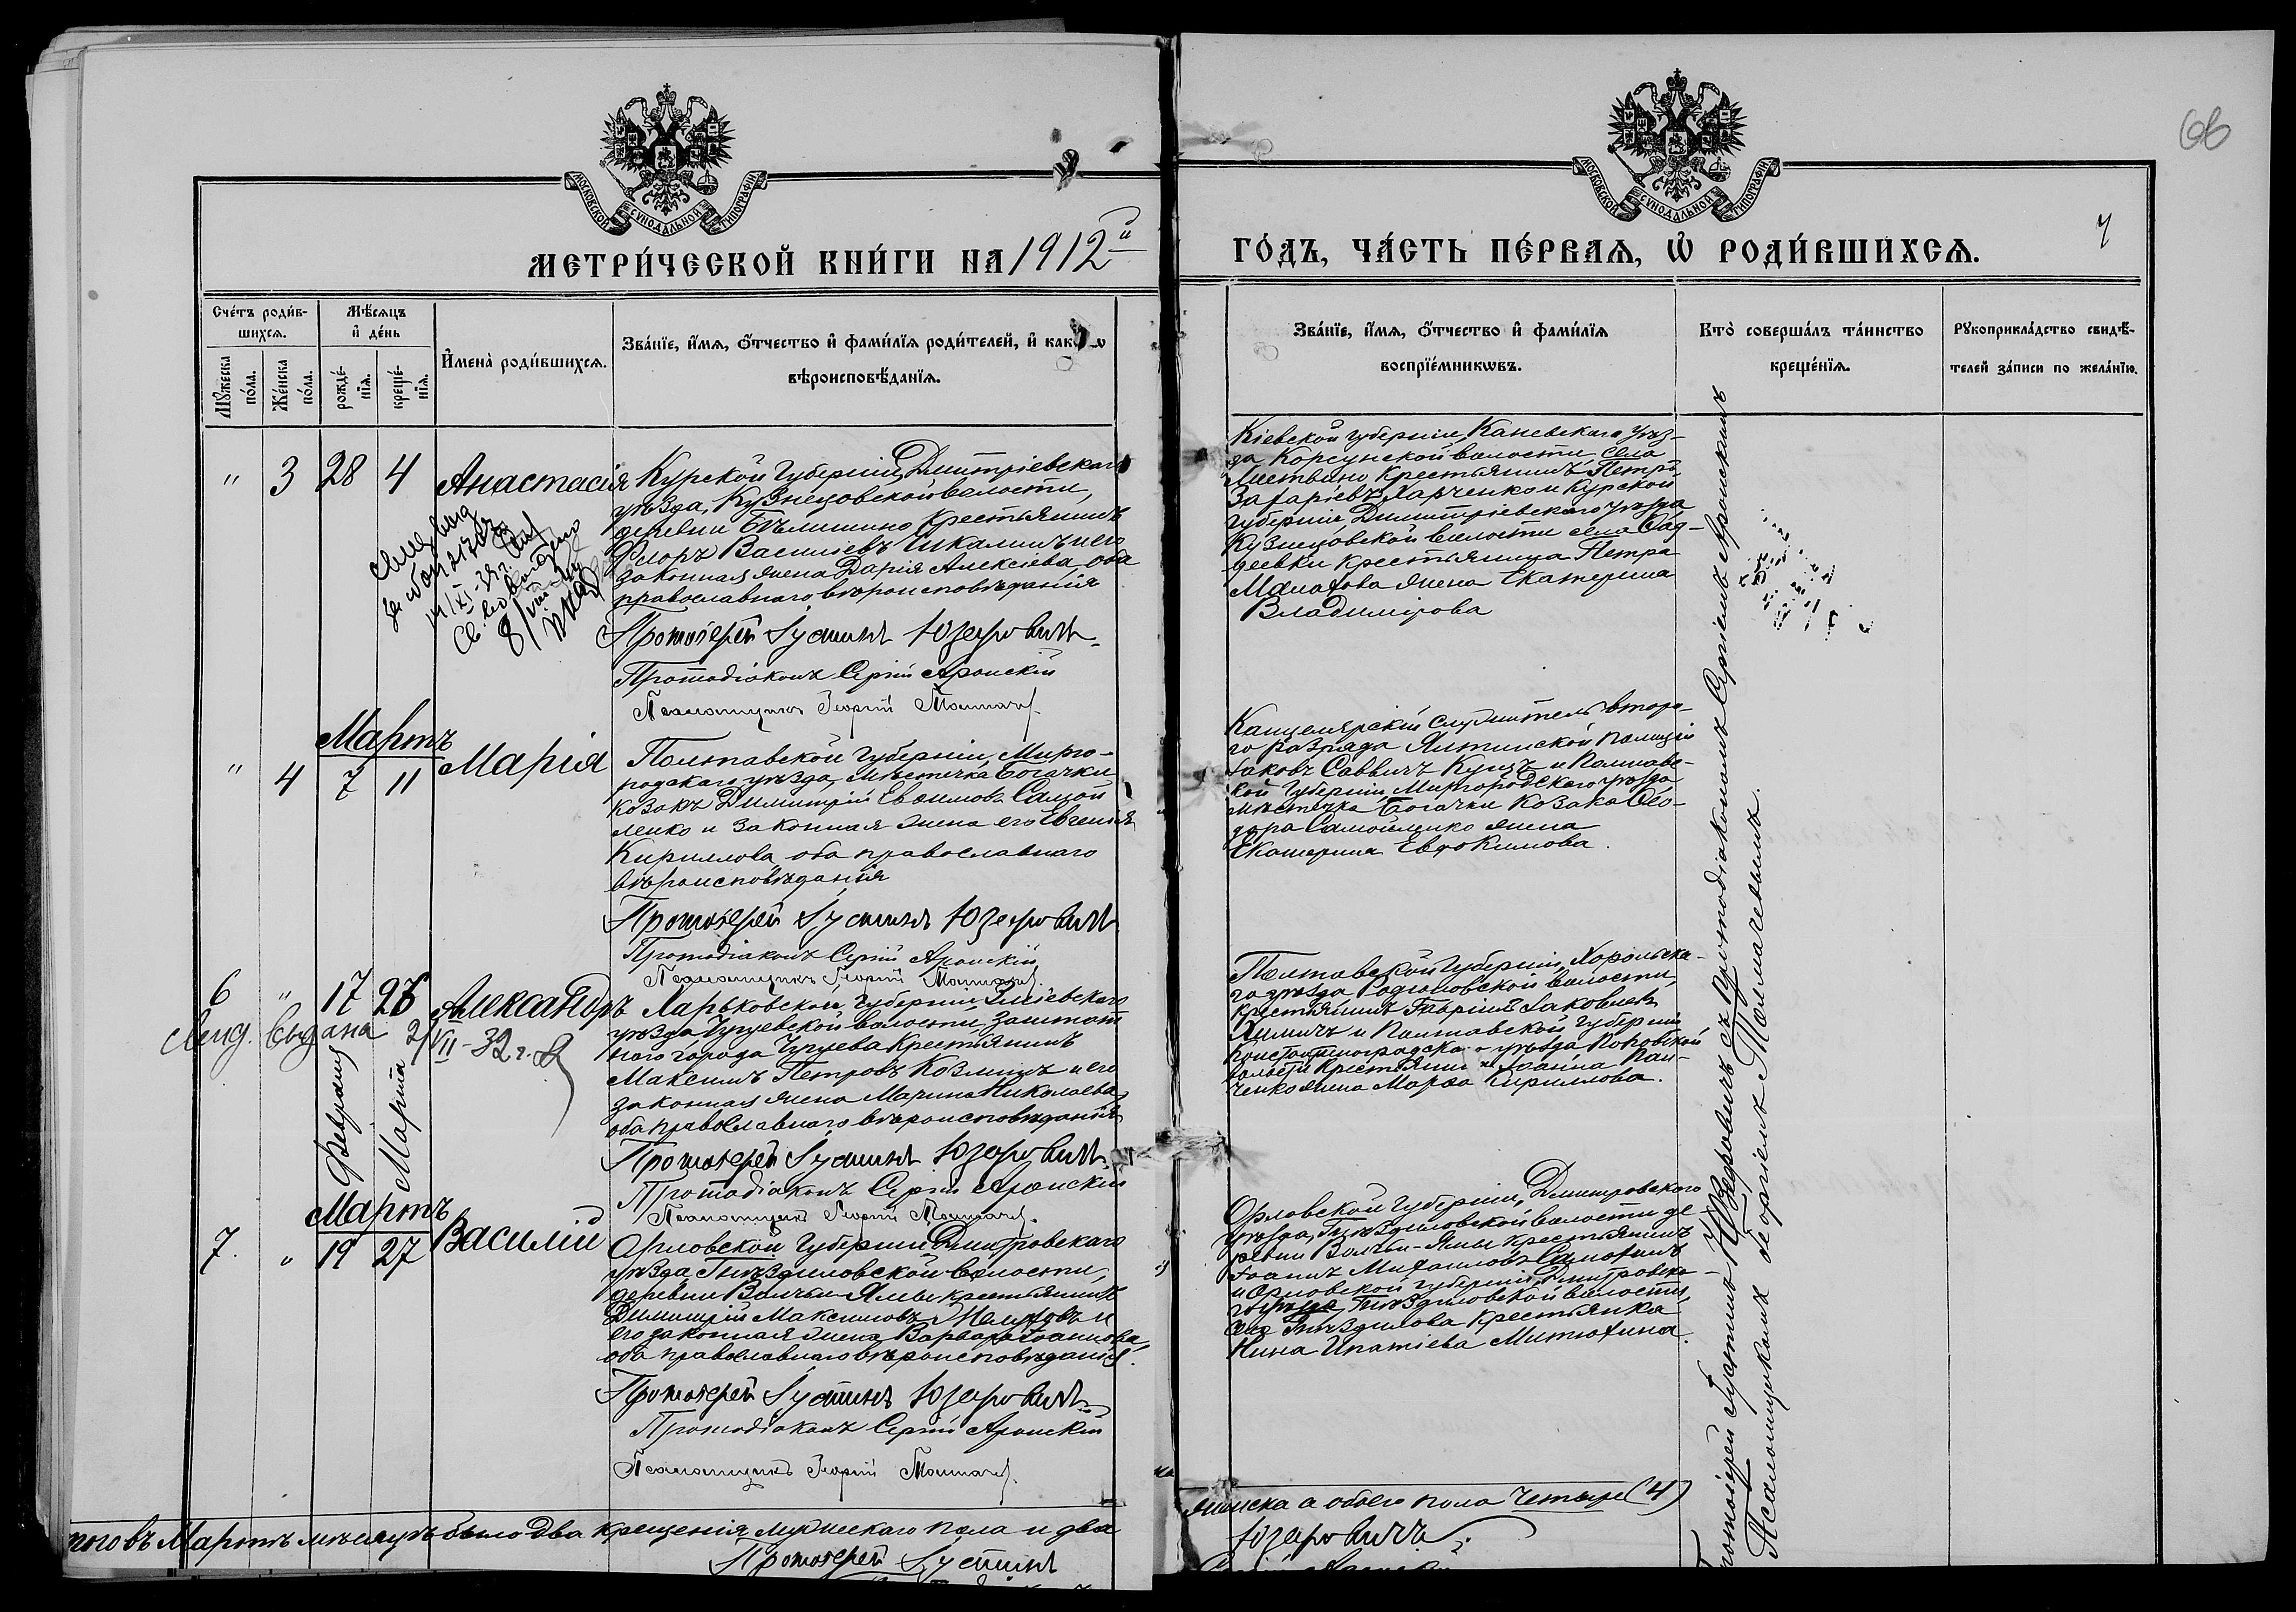 66
МОСКОВСКОЙ СУНОДАЛЬНОЙ ТИПОГРАФІИ
МОСКОВСКОЙ СУНОДАЛЬНОЙ ТИПОГРАФІИ
7
МЕТРИ́ЧЕСКОЙ КНИ́ГИ НА 1912й
ГО́ДЪ, ЧА́СТЬ ПЕ́РВАѦ, Ѡ҆ РОДИ́ВШИХСѦ.
Счéтъ роди́в-
шихсѧ.
Мꙋ́жеска по́ла.
Же́нска по́ла.
Мѣ́сѧцъ
и҆ де́нь
рожде́-
нїѧ.
креще́-
нїѧ.
И҆мена̀ роди́вшихсѧ.
Зва́нїе, и҆́мѧ, ѻ҆́тчество и҆ фами́лїѧ роди́телей, и҆ как
вѣроисповѣ́данїѧ.
Зва́нїе, и҆́мѧ, ѻ҆́тчество и҆ фами́лїѧ
воспрїе́мникѡвъ.
Кто̀ соверша́лъ та́инство
креще́нїѧ.
Рꙋкоприкла́дство свидѣ́-
телей за́писи по жела́нїю.
" 3 28 4 Анастасія
Курской губерніи, Дмитріевскаго
уѣзда, Кузнецовской волости,
деревни крестьянинъ
Флоръ Василіевъ и его
законная жена Дарія Алексіева, оба
православнаго вѣроисповѣданія
Протоіерей Іустинъ Юзефовичъ
Протодіаконъ Сергій Аронскій
Псаломщикъ Георгій
Кіевской губерніи, Каневскаго уѣз-
да Корсунской волости, села
крестьянинъ Петръ
Захаріевъ Харченко и Курской
губерніи, Димитріевскаго уѣзда
Кузнецовской волости села
крестьянина Петра
Малахова жена Екатерина
Владимірова
Мартъ
" 4 7 11 Марія
Полтавской губерніи, Мирго-
родскаго уѣзда, мѣстечка Богачки
козакъ Димитрій Евѳимовъ Самой
ленко и законная жена его Евгенія
Кириллова, оба православнаго
вѣроисповѣданія
Протоіерей Іустинъ Юзефовичъ
Протодіаконъ Сергій Аронскій
Псаломщикъ Георгій
Канцелярскій служитель второ-
го разряда Ялтинской полиціи
Іаковъ Саввичъ Куцъ и Полтавс-
кой губерніи, Миргородскаго уѣзда
мѣстечка Богачки козака Ѳео-
дора Самойленко жена
Екатерина Евдокимова.
6 " 17 26 Александръ
выдана 2/VII-32 г.
Февраля
Марта
Харьковской губерніи Зміевскаго
уѣзда Чугуевской волости, заштат
наго города Чугуева крестьянинъ
Максимъ Петровъ Козминъ и его
законная жена Марина Николаева,
оба православнаго вѣроисповѣданія
Протоіерей Іустинъ Юзефовичъ
Протодіаконъ Сергій Аронскій
Псаломщикъ Георгій
Полтавской губерніи, Хорольска-
го уѣзда волости,
крестьянинъ Гавріилъ Іаковлевъ
и Полтавской губерніи
Константиноградскаго уѣзда Поповской
волости крестьянина Іоанна Пан-
ченко жена Марѳа Кириллова.
Мартъ
7. " 19 27 Василій
Орловской губерніи Дмитровскаго
уѣзда Гнѣздиловской волости,
деревни Волчьи-Ямы крестьянинъ
Димитрій Максимовъ и
его законная жена Варвара Іоаннова,
оба православнаго вѣроисповѣданія.
Протоіерей Іустинъ Юзефовичъ
Протодіаконъ Сергій Аронскій
Псаломщикъ Георгій
Орловской губерніи, Дмитровскаго
уѣзда, Гнѣздиловской волости де-
ревни Волчьи-Ямы крестьянинъ
Іоаннъ Михаиловъ Самохинъ
и Орловской губерніи, Дмитровска-
го уѣзда, Гнѣздиловской волости,
села Гнѣздилова крестьянка
Нина Ипатіева Митюхина.
Протоіерей Іустинъ Юзефовичъ съ протодіакономъ Сергіемъ Аронскимъ
Псаломщикомъ Георгіемъ Толмачевымъ.
того въ Мартѣ мѣсяцѣ было два крещенія мужескаго пола и два
женска а обоего пола четыре (4)
Протоіерей Іустинъ
Юзефовичъ